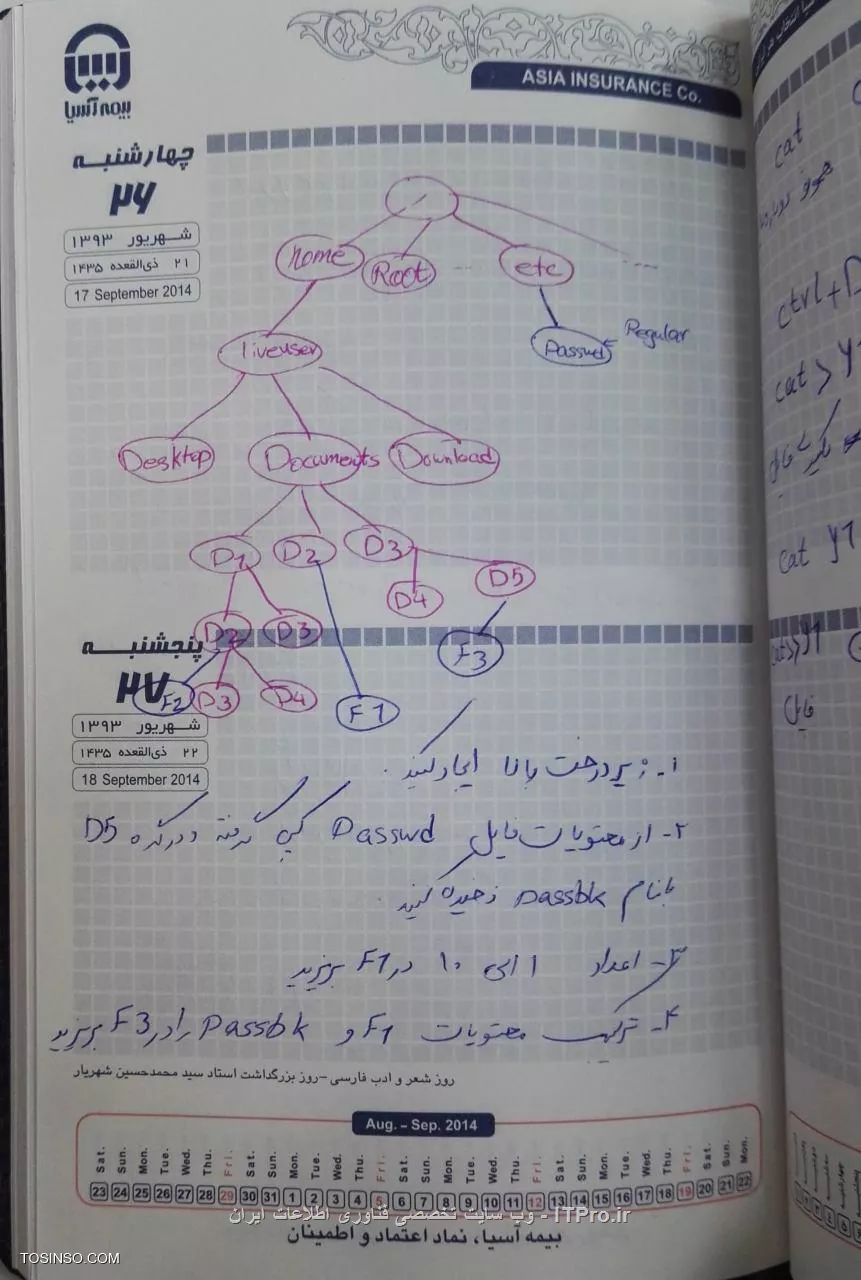 ASIA INSURANCE Co.
بیمه آسیا
چهارشنبه
۲۶
شهریور ۱۳۹۳
۲۱ ذی‌القعده ۱۴۳۵
17 September 2014
/
home Root ... etc ...
liveuser Passwd Regular
Desktop Documents Download
D1 D2 D3
D4 D5
D2 D3 F3
F2 D3 D4 F1
پنجشنبه
۲۷
شهریور ۱۳۹۳
۲۲ ذی‌القعده ۱۴۳۵
18 September 2014
۱- زیر درخت بالا ایجاد کنید.
۲- از محتویات فایل Passwd کپی گرفته و در گره D5
با نام Passbk ذخیره کنید.
۳- اعداد ۱ الی ۱۰ در F1 بریزید
۴- ترکیب محتویات F1 و Passbk را در F3 بریزید
روز شعر و ادب فارسی – روز بزرگداشت استاد سید محمدحسین شهریار
Aug. - Sep. 2014
Sat. Sun. Mon. Tue. Wed. Thu. Fri. Sat. Sun. Mon. Tue. Wed. Thu. Fri. Sat. Sun. Mon. Tue. Wed. Thu. Fri. Sat. Sun. Mon. Tue. Wed. Thu. Fri. Sat. Sun. Mon.
23 24 25 26 27 28 29 30 31 1 2 3 4 5 6 7 8 9 10 11 12 13 14 15 16 17 18 19 20 21 22
ITPro.ir - وب سایت تخصصی فناوری اطلاعات ایران
بیمه آسیا، نماد اعتماد و اطمینان
TOSINSO.COM
cat
ctrl+D
cat > y1
cat y1
cat>>y1
فایل